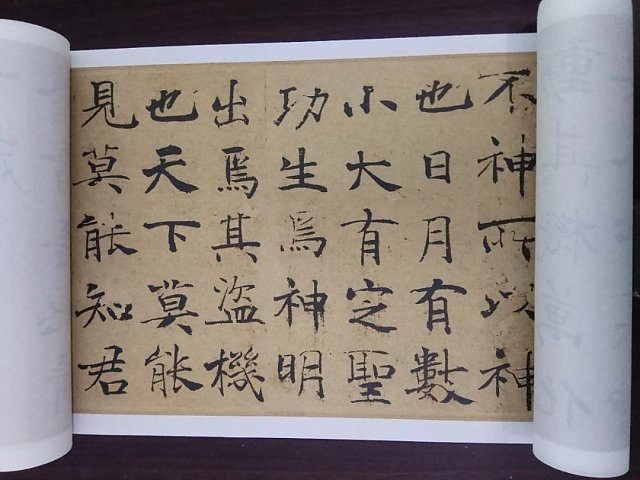 不神所以神
也日月有數
小大有定聖
功生焉神明
出焉其盜機
也天下莫能
見莫能知君